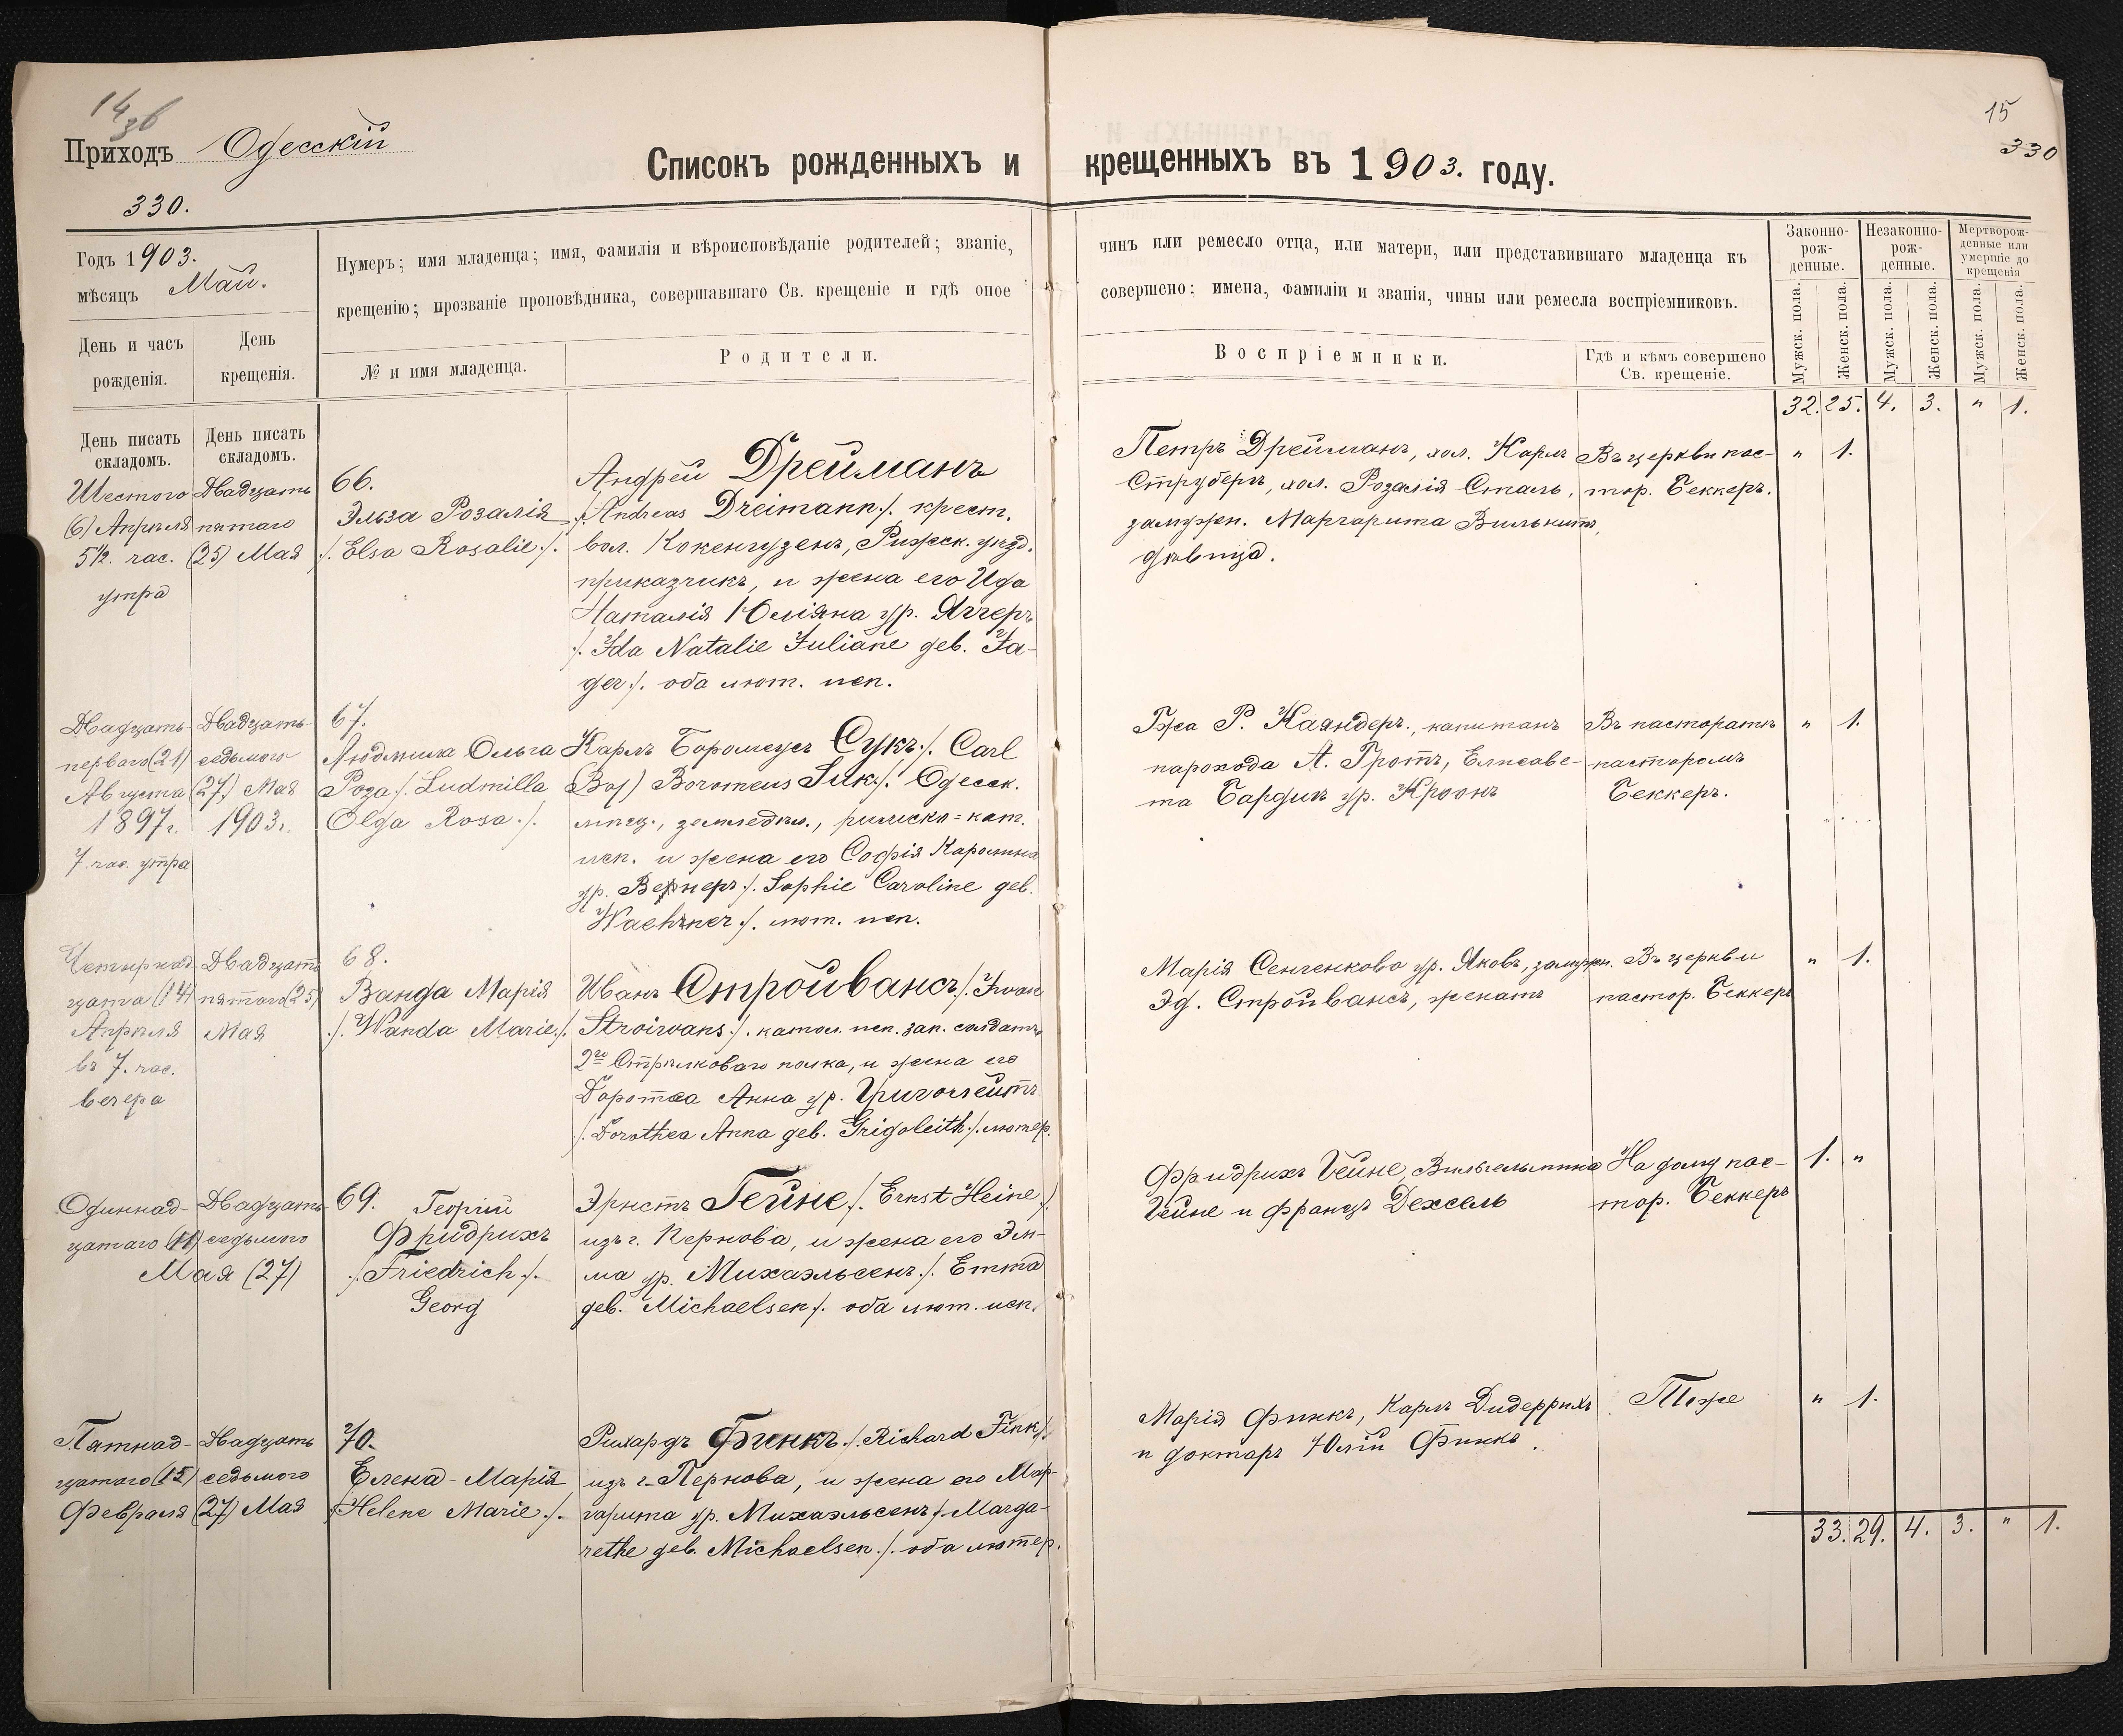 14
Приходъ Одесскій
330.
Списокъ рожденныхъ и
Годъ 1903.
мѣсяцъ Май.
Нумеръ; имя младенца; имя, фамилія и вѣроисповѣданіе родителей; званіе,
крещенію; прозваніе проповѣдника, совершавшаго Св. крещеніе и гдѣ оное
День и часъ
рожденія.
День
крещенія.
№ и имя младенца.
Родители.
День писать
складомъ.
День писать
складомъ.
Шестого
(6) Апрѣля
5½. час.
утра
Двадцать
пятаго
(25) Мая
66.
Эльза Розалія
/. Elsa Rosalie /.
Андрей Дрейманъ
/. Andreas Dreimann /. крест.
вол. Кокенгузенъ, Рижск. уѣзд.
приказчикъ, и жена его Ида
Наталія Юліяна ур. Яггеръ
/. Ida Natalie Juliane geb. Ja-
ger /. оба лют. исп.
Двадцать
перваго (21)
Августа
1897 г.
7 час. утра
Двадцать
седьмого
(27) Мая
1903 г.
67.
Людмила Ольга
Роза /. Ludmilla
Olga Rosa /.
Карлъ Боромеусъ Сукъ /. Carl
Boromeus Suk /. Одесск.
мѣщ., земледѣл., римско-кат.
исп. и жена его Софія Каролина
ур. Вернеръ /. Sophie Caroline geb.
Waehrner /. лют. исп.
Четырнад-
цата (14)
Апрѣля
въ 7. час.
вечера
Двадцать
пятаго (25)
Мая
68.
Ванда Марія
/. Wanda Marie /.
Иванъ Стройвансъ /. Iwan
Stroiwans /. катол. исп. зап. солдатъ
2го Стрѣлковаго полка, и жена его
Доротеа Анна ур. Григолейтъ
/. Dorothea Anna geb. Grigoleith /. лютер.
Одиннад-
цатаго (11)
Мая
Двадцать
седьмого
(27)
69. Георгій
Фридрихъ
/. Friedrich /.
Georg
Эрнстъ Гейне /. Ernst Heine /.
изъ г. Пернова, и жена его Эм-
ма ур. Михаэльсенъ /. Emma
geb. Michaelsen /. оба лют. исп.
Пятнад-
цатаго (15)
Февраля
Двадцать
седьмого
(27) Мая
70.
Елена-Марія
/. Helene Marie /.
Рихардъ Финкъ /. Richard Fink /.
изъ г. Пернова, и жена его Мар-
гарита ур. Михаэльсенъ /. Marga-
rethe geb. Michaelsen /. оба лютер.
15
330
крещенныхъ въ 1903. году.
чинъ или ремесло отца, или матери, или представившаго младенца къ
совершено; имена, фамиліи и званія, чины или ремесла воспріемниковъ.
Воспріемники.
Гдѣ и кѣмъ совершено
Св. крещеніе.
Законно-
рож-
денные.
Незаконно-
рож-
денные.
Мертворож-
денные или
умершіе до
крещенія
Мужск. пола.
Женск. пола.
Мужск. пола.
Женск. пола.
Мужск. пола.
Женск. пола.
32. 25. 4. 3. " 1.
Петръ Дрейманъ, хол. Карлъ
Струбергъ, хол. Розалія Сталь,
замужен. Маргарита Вилькитъ,
дѣвица.
Въ церкви пас-
тор. Беккеръ.
" 1.
Гжа Р. Каяндеръ, капитанъ
парохода А. Гротъ, Елисаве-
та Бардигъ ур. Кроонъ
Въ пасторатѣ
пасторомъ
Беккеръ.
" 1.
Марія Сенченкова ур. Яковъ, замужн.
Эд. Стройвансъ, женатъ
Въ церкви
пастор. Беккеръ
" 1.
Фридрихъ Гейне, Вильгельмина
Гейне и Францъ Дехсель
На дому пас-
тор. Беккеръ
1. "
Марія Финкъ, Карлъ Дидеррихъ
и докторъ Юлій Финкъ.
Тоже
" 1.
33. 29. 4. 3. " 1.